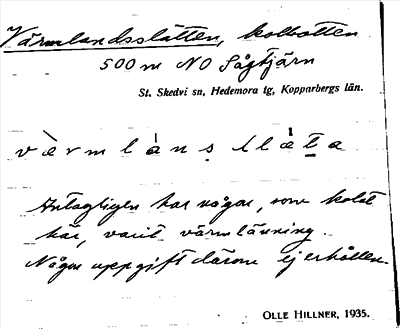 Värmlandsslätten, kolbotten
500 m NO Sågtjärn
St. Skedvi sn, Hedemora tg, Kopparbergs län.
vὲrmlànṣlὲ̀ta
Antagligen har någon, som kolat
här, varit värmlänning.
Någon uppgift därom ej erhållen.
OLLE HILLNER, 1935.